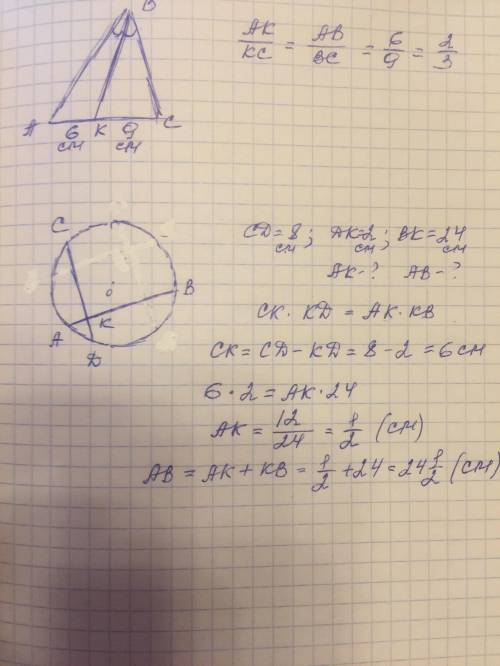 B
AK/KC = AB/BC = 6/9 = 2/3
A 6 см K 9 см C
C
B
O
K
A
D
CD = 8 см; AK = 2 см; BK = 24 см
AK - ? AB - ?
CK · KD = AK · KB
CK = CD - KD = 8 - 2 = 6 см
6 · 2 = AK · 24
AK = 12/24 = 1/2 (см)
AB = AK + KB = 1/2 + 24 = 24 1/2 (см)